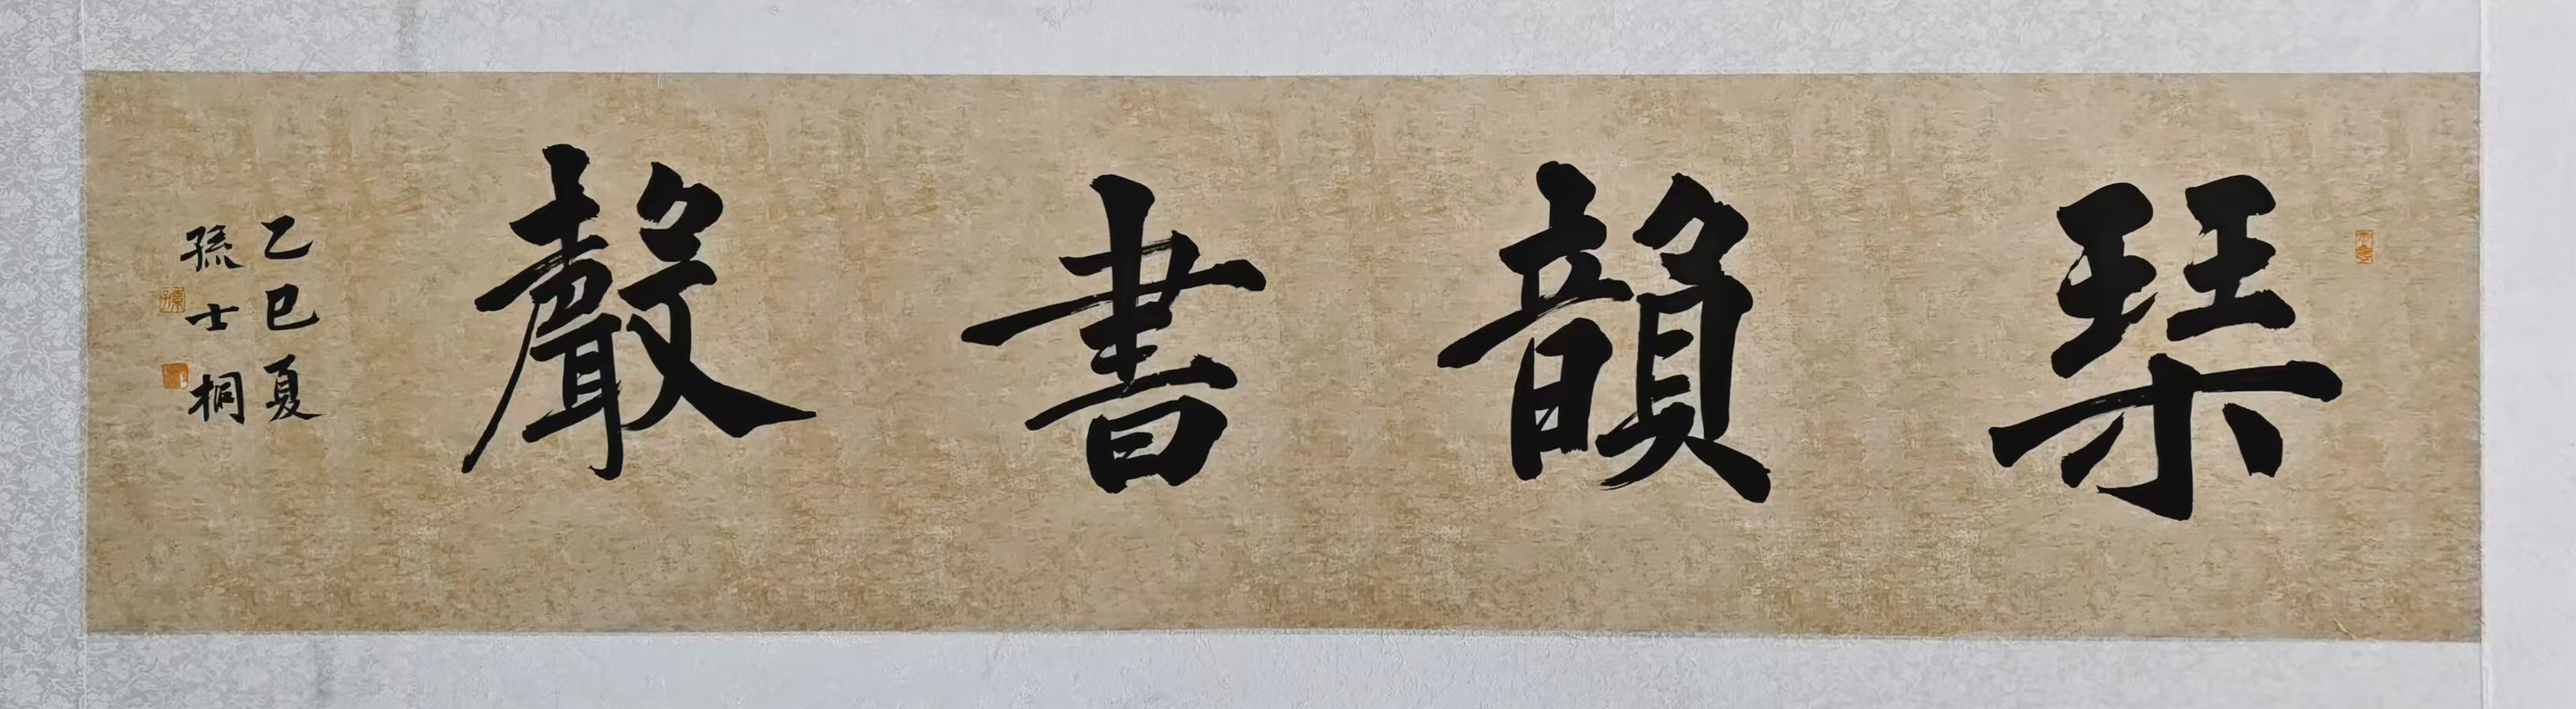 琹韻書聲
乙巳夏
孫士桐